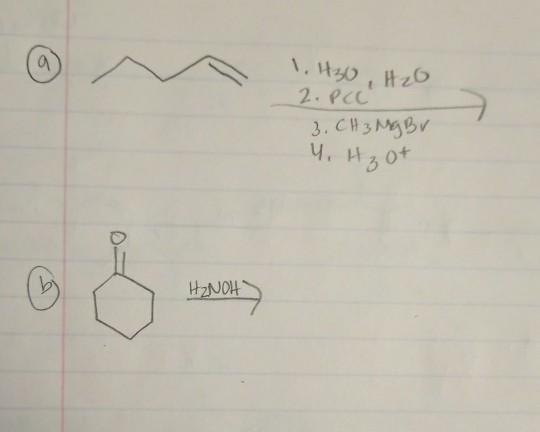 a
1. H3O, H2O
2. PCC
3. CH3MgBr
4. H3O+
b
O
H2NOH